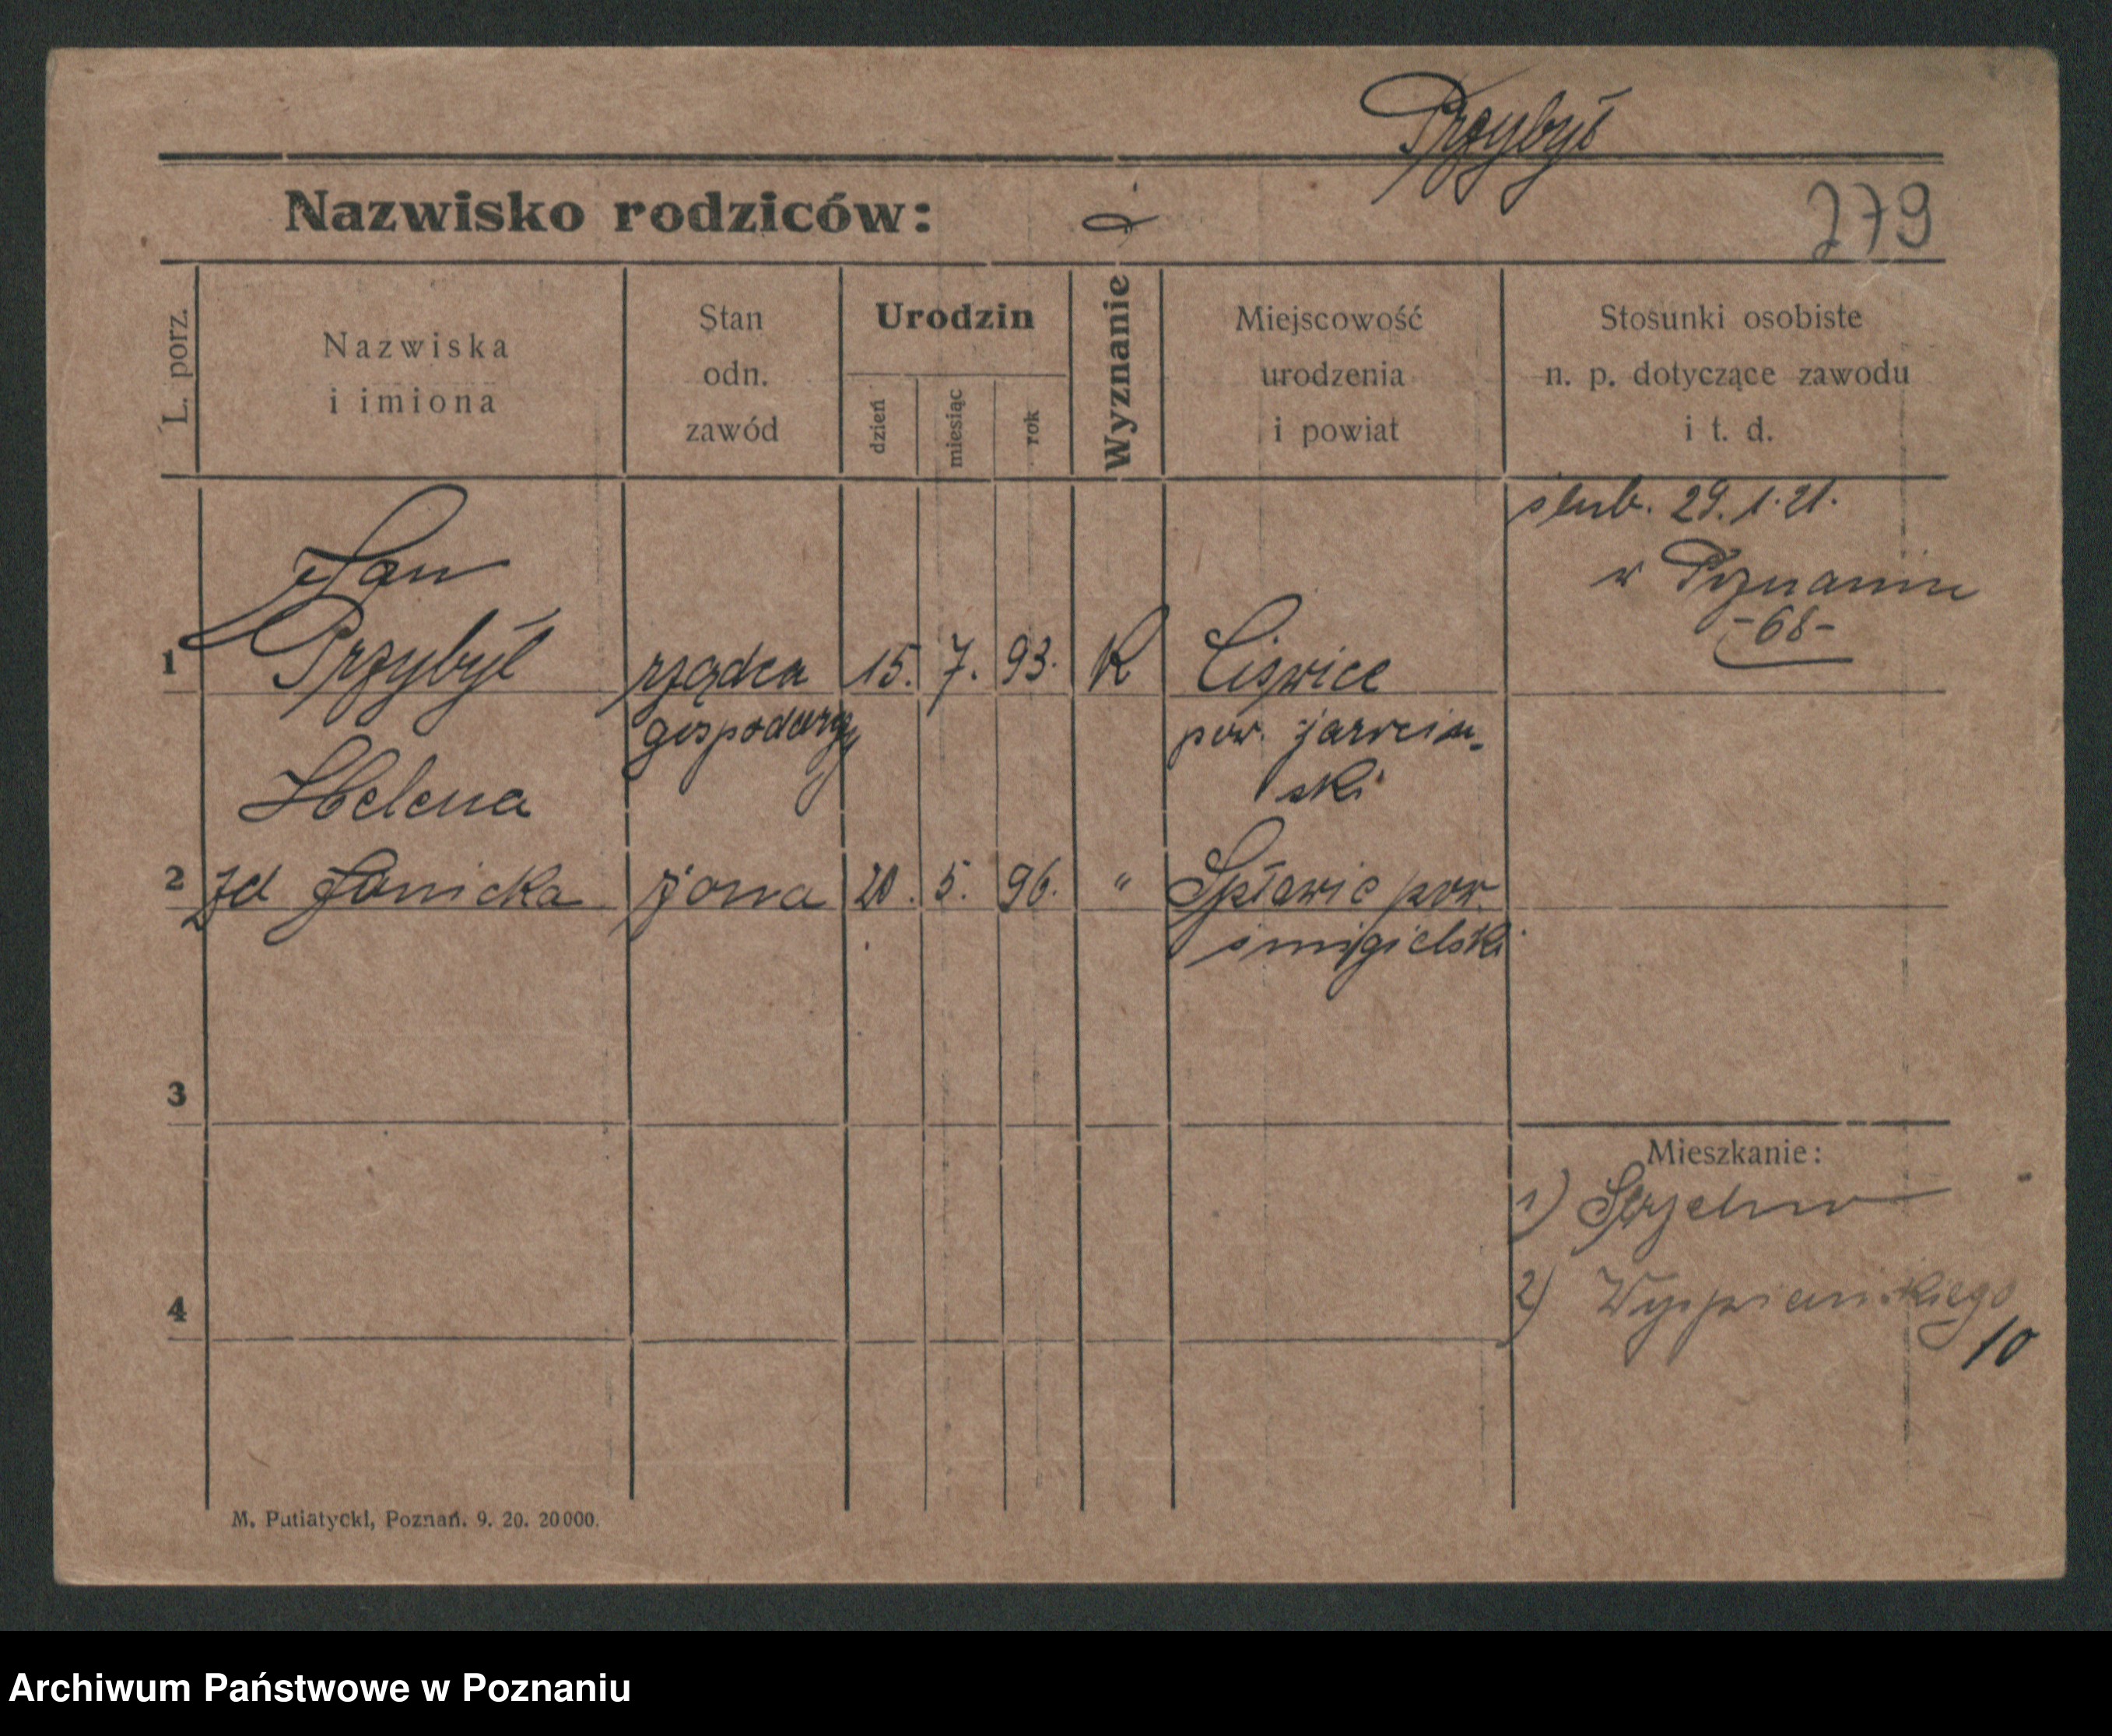 Przybył
Nazwisko rodziców:
279
L. porz.
Nazwiska
i imiona
Stan
odn.
zawód
Urodzin
dzień
miesiąc
rok
Wyznanie
Miejscowość
urodzenia
i powiat
Stosunki osobiste
n. p. dotyczące zawodu
i t. d.
ślub. 29. 1. 21.
w Poznaniu
-68-
Jan
1 Przybył rządca 15. 7. 93. K
gospodarzy
pow. jarocin-
ski
Helena
2 zd Janicka żona 20. 5. 96. " Spławie pow.
śmigielski
3
4
Mieszkanie:
1)
2) Wyspiańskiego
10
M. Putiatycki, Poznań. 9. 20. 20000.
Archiwum Państwowe w Poznaniu